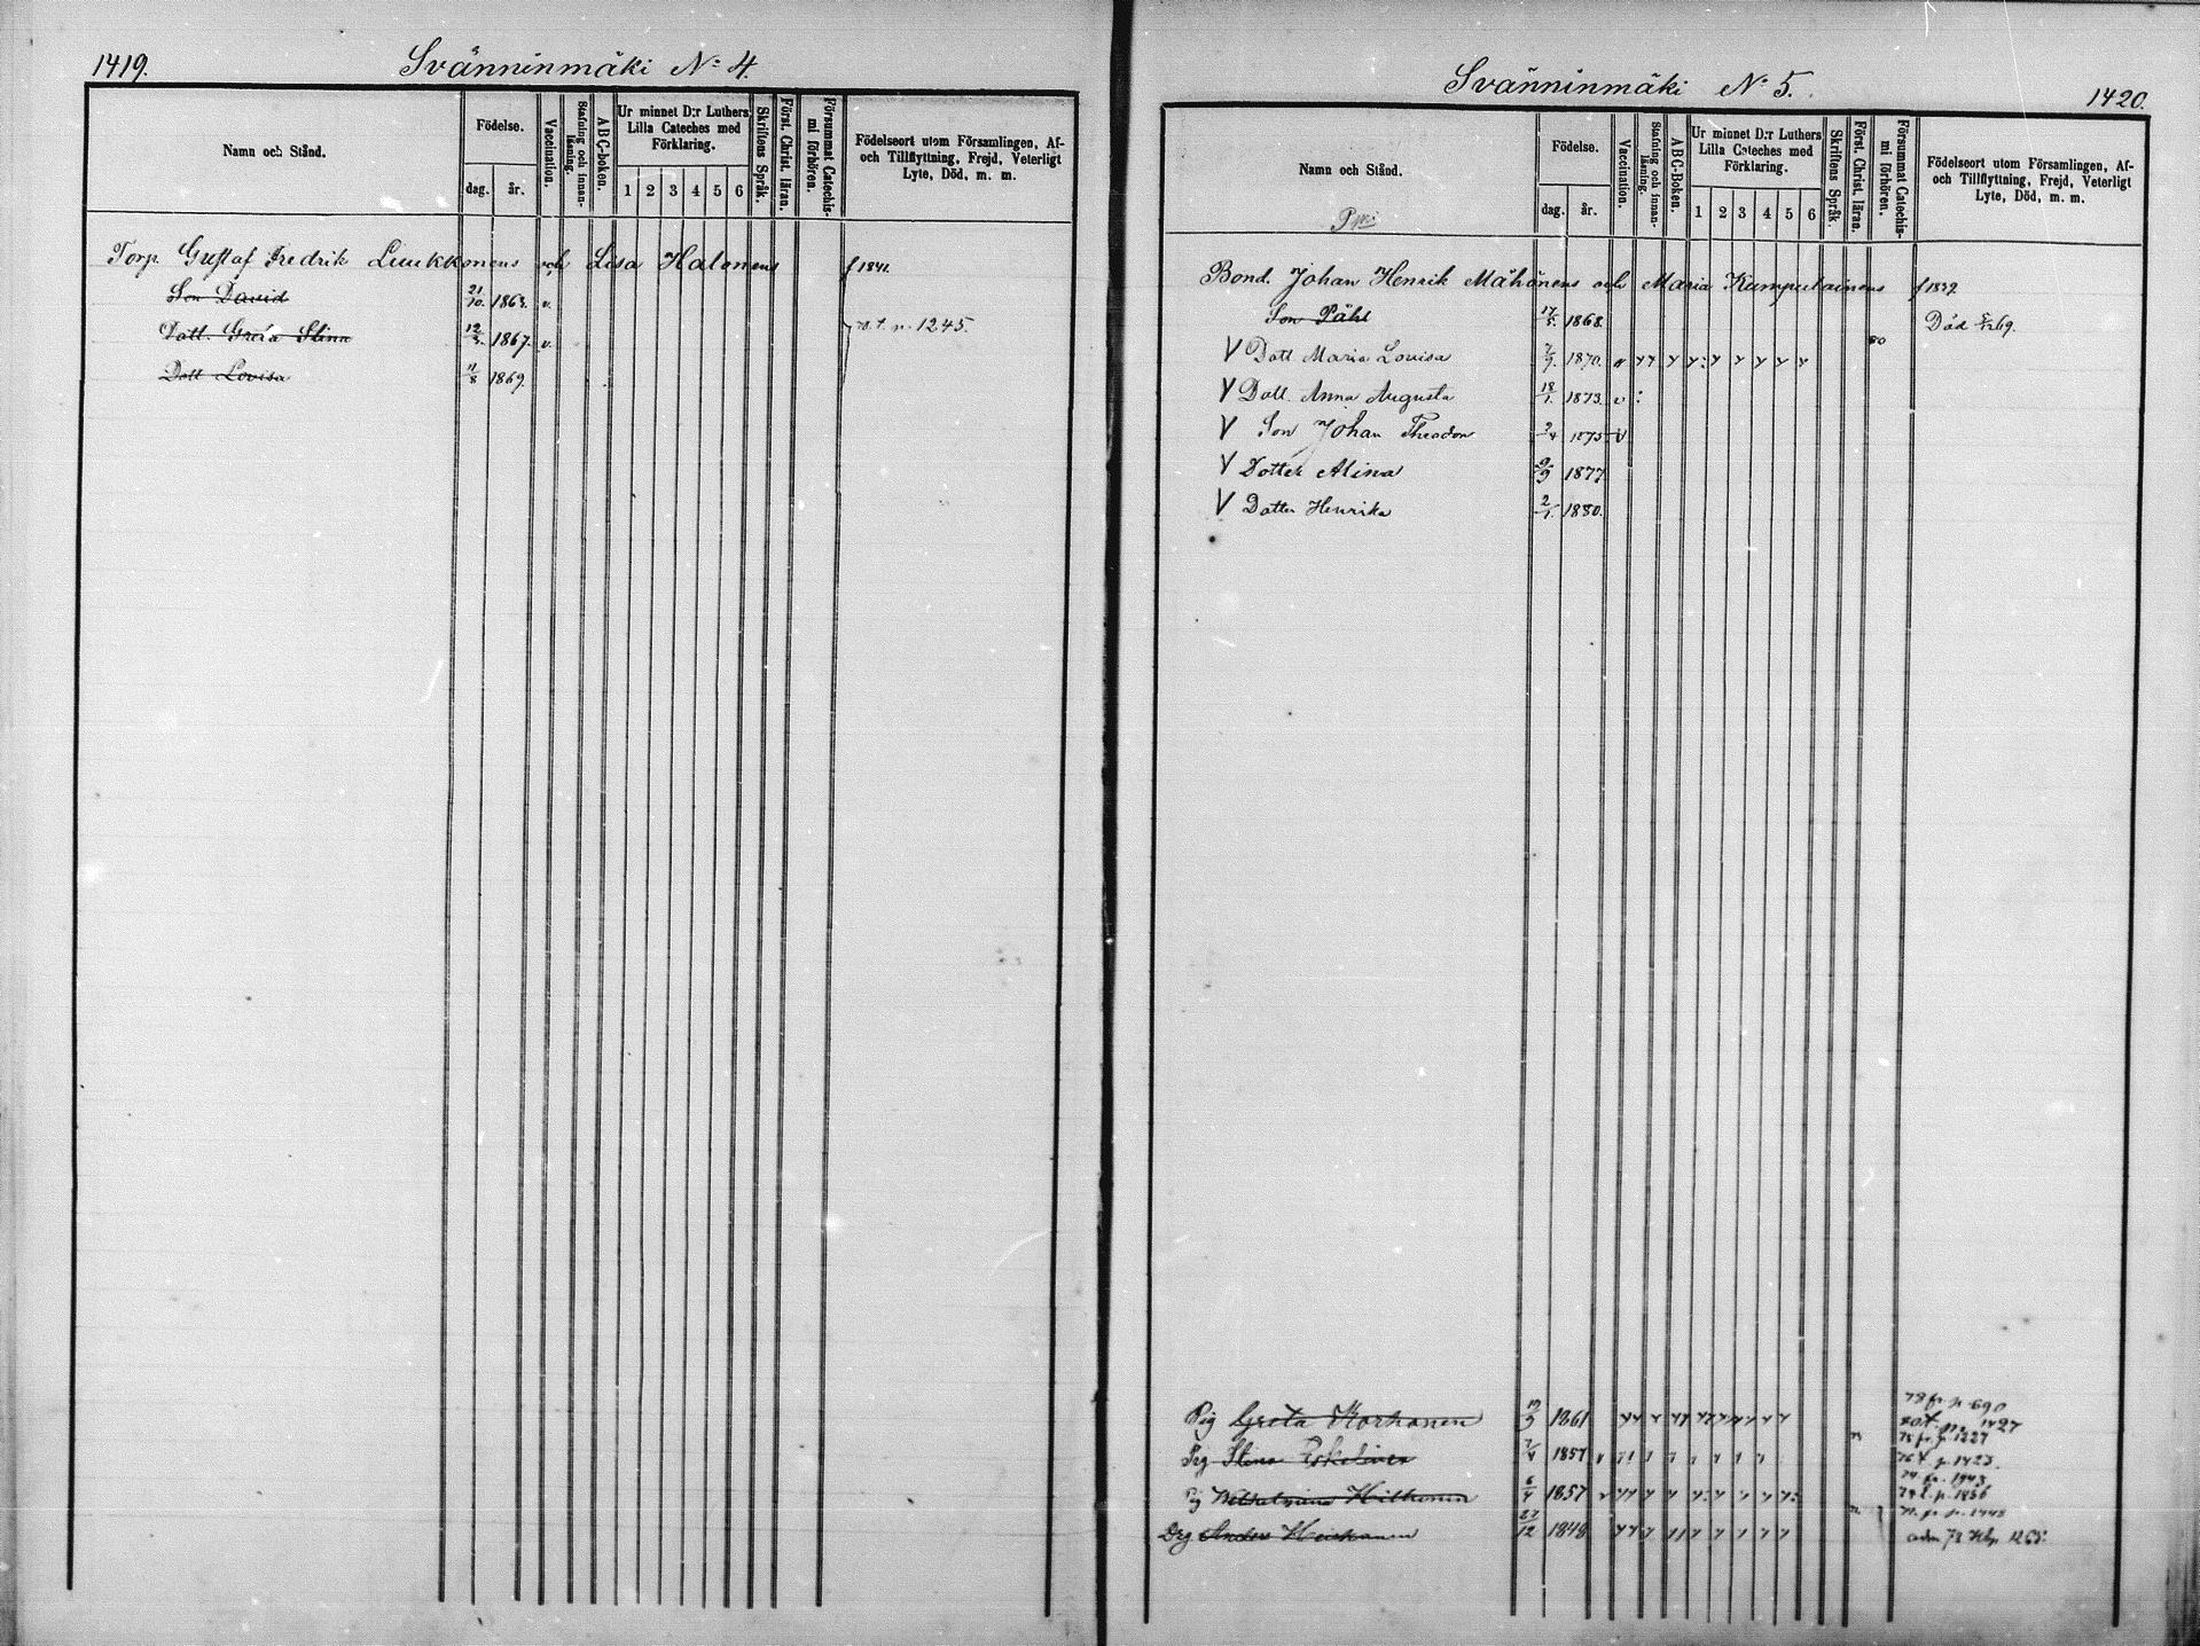 1419.
Svänninmäki No 4.
Namn och Stånd.
Födelse.
dag.
år.
Vaccination.
Stafning och innan-läsning.
ABC-boken.
Ur minnet D:r Luthers
Lilla Cateches med
Förklaring.
1 2 3 4 5 6
Skriftens Språk.
Först. Christ. läran.
Försummat Catechis-
mi förhören.
Födelseort utom Församlingen, Af-
och Tillflyttning, Frejd, Veterligt
Lyte, Död, m. m.
Torp. Gustaf Fredrik Luukkonens och Lisa Halonens f 1841.
Son David 21/10. 1863. v.
Dott. Greta Stina 12/3. 1867. v. p. 1245.
Dott Lovisa 11/8 1869.
Svänninmäki No 5.
1420.
Namn och Stånd.
Födelse.
dag.
år.
Vaccination.
Stafning och innan-
läsning.
ABC-Boken.
Ur minnet D:r Luthers
Lilla Cateches med
Förklaring.
1 2 3 4 5 6
Skriftens Språk.
Först. Christ. läran.
Försummat Catechis-
mi förhören.
Födelseort utom Församlingen, Af-
och Tillflyttning, Frejd, Veterligt
Lyte, Död, m. m.
Bond. Johan Henrik Mähönens och Maria Kumpulainens f 1839.
Son Påhl 17/5. 1868. Död 69.
V Dott Maria Lovisa 7/9. 1870. 80
V Dott. Anna Augusta 18/1. 1873. v
V Son Johan Theodor 1875 v
V Dotter Alina 1877
V Dotter Henrika 2/1. 1880.
Pig Greta Korhonen 1861 78 fr. p. 690
1427
Pig Stina Eskelinen 7/4 1857 p. 1423
Pig Wilhelmina Hilthunen 6/4 1857 p. 1856
Drg Anders Heiskanen 27/12 1848